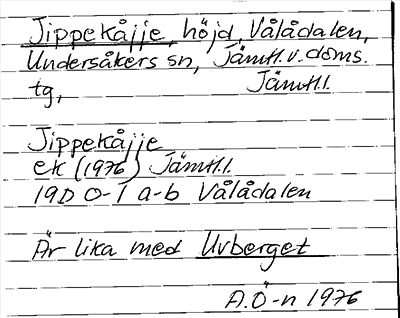 Jippekåjje, höjd, Vålådalen,
Undersåkers sn, Jämtl.v.doms.
tg, Jämtl.l.
Jippekåjje
ek (1976) Jämtl.l.
19D 0-1 a-b Vålådalen
Är lika med Uvberget
A.Ö-n 1976